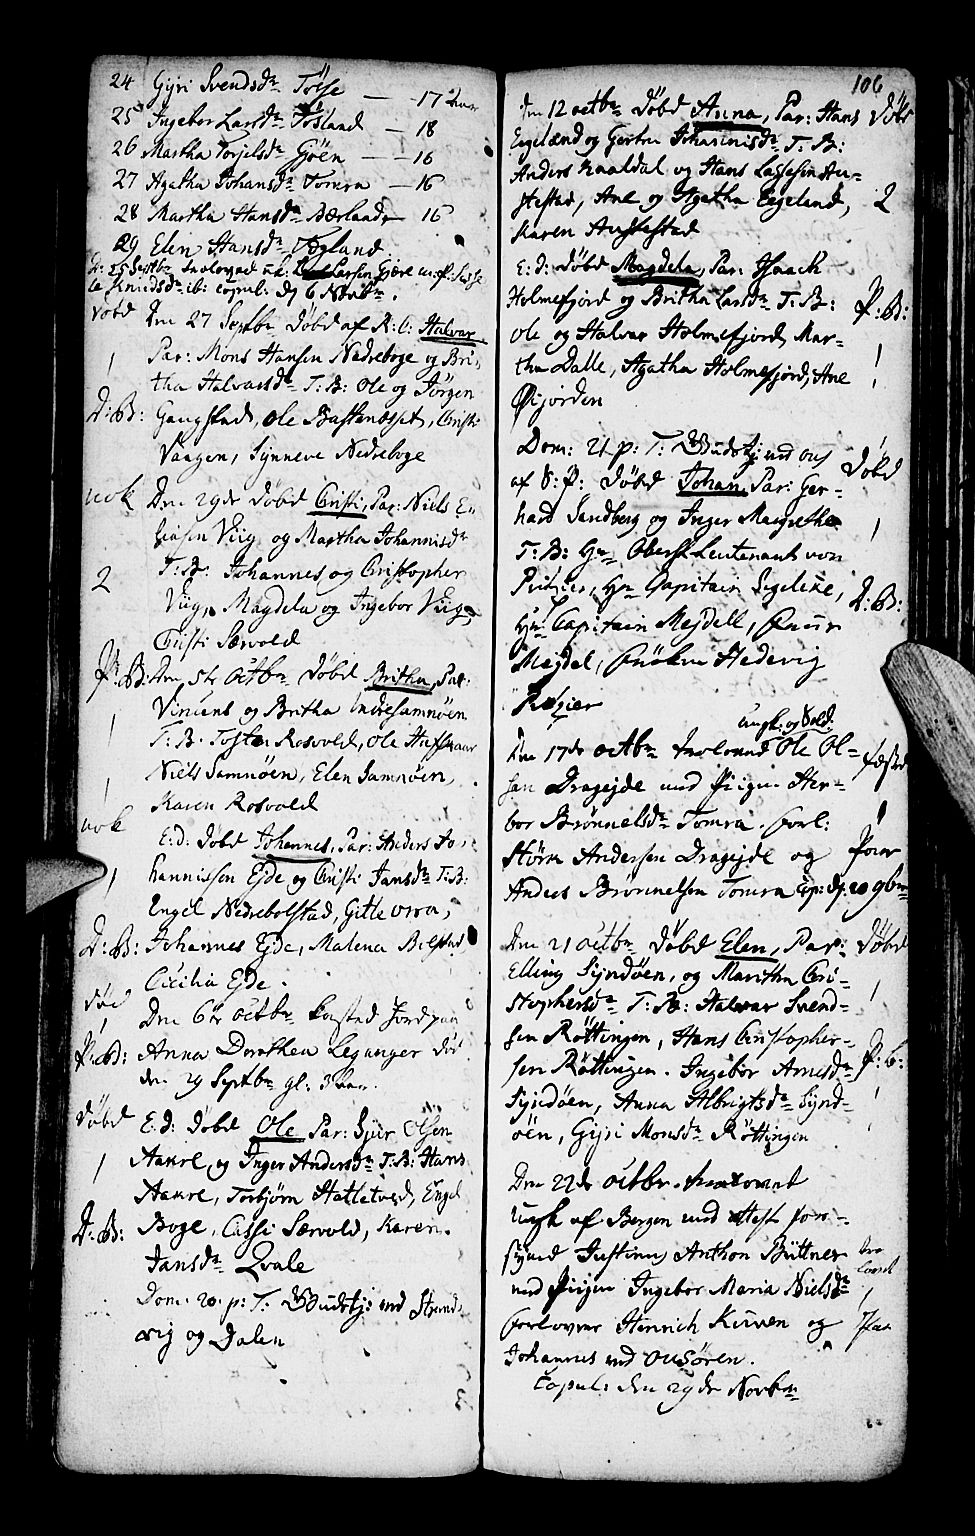 24 Gyri Svendsdr Tøsse — 17 aar
25 Ingebor Larsdr Røsland — 18
26 Martha Torjelsdr Gjöen — 16
27 Agatha Johansdr Tomra — 16
28 Martha Hansdr Bærland 16
29 Elen Hansdr Fogland
D: 25 Septbr
copul: d 6 Novbr.
Døbd Den 27 Septbr Døbd af R: C: Halvar
1 Par: Mons Hansen Nedreboge og Bri-
tha Halvarsdr T: B: Ole og Jörgen
D: B: Gangstad, Ole Bastenesset, Cristi
Vaagen, Synneve Nedreboge
nok Den 29de Døbd Cristi, Par: Niels E-
liasen Viig og Martha Johannisdr
2 T: B: Johannes og Cristopher
Viig, Magdela og Ingebor Viig
Cristi Særvold
P: B: Den 5te Octbr Døbd Britha, Par:
1 Vincent og Britha Indresamnøen
T: B: Tosten Rosvold, Ole Hufthaar
1 Niels Samnøen, Elen Samnøen,
Karen Rosvold
nok E: d: Døbd Johannes, Par: Anders Jo-
1 hannissen Ejde og Cristi Jansdr T: B:
Engel Nedrebolstad, Gitte Orra,
D: B: Johannes Ejde, Malena Bolstad
Cecilia Ejde.
død Den 6te Octbr kastad Jord paa
1
P: B: Anna Dorothea Leganger død
den 29 Septbr gl: 3 aar.
Døbd E: d: Døbd Ole Par: Sjur Olsen
1 Aakre, og Inger Andersdr T: B: Hans
Aakre, Torbjørn Hatletved, Engel
D: B: Boge, Cassi Særvold, Karen
Jansdr Qvale
Dom: 20. p: T: Gudstj: ved Strand-
vig og Dalen
106
Den 12 octbr Døbd Anna, Par: Hans Døbd
Eegeland og Gertru Johannisdr T: B:
Anders Kaaldal og Hans Lassesen Au-
stestad, Ane og Agatha Eegeland, 2
Karen Austestad
E: d: Døbd Magdela, Par: Isaach
Holmefjord og Britha Larsdr T: B: P: B:
Ole og Halvar Holmefjord, Mar- 1
tha Dalle, Agatha Holmefjord, Ane 1
Øijorden
Dom: 21. p: T: Gudstj: ved ous
af S: P: Døbd Johan, Par: Ger- Døbd
hard Sandberg og Inger Magrethe 1
T: B: Hr Oberst Leutenant von
Hr Capitain Segelcke, D: B:
Hr Capitain Mejdell, Fruer
Mejdal, Frøken Hedevig
ungk: og Sold:
Den 17de octbr trolovad Ole Ol- fæsted
sen Drageide med Pigen Her- 1
bor Brønnelsdr Tomra. forl:
Størk Andersen Drageide og
Anders Brønnelsen Tomra Cop: d. 20 9br
Den 21 octbr Døbd Elen, Par: Døbd
Elling Syndøen, og Maritha Cri- 1
stophersdr T: B: Halvar Svend-
sen Röttingen, Hans Cristopher-
sen Röttingen. Ingebor Arnesdr P: B:
Syndøen, Anna Albrigtsdr Synd- 1
øen, Gyri Monsdr Röttingen
Den 22de octbr
ungk af Bergen med Attest
Justinus Anthon Büttner tro
med Pigen Ingebor Maria Nielsdr lovet
forlovere Henrich Kuven og 1
Johannes ved Ousøren.
Copul: den 29de Novbr